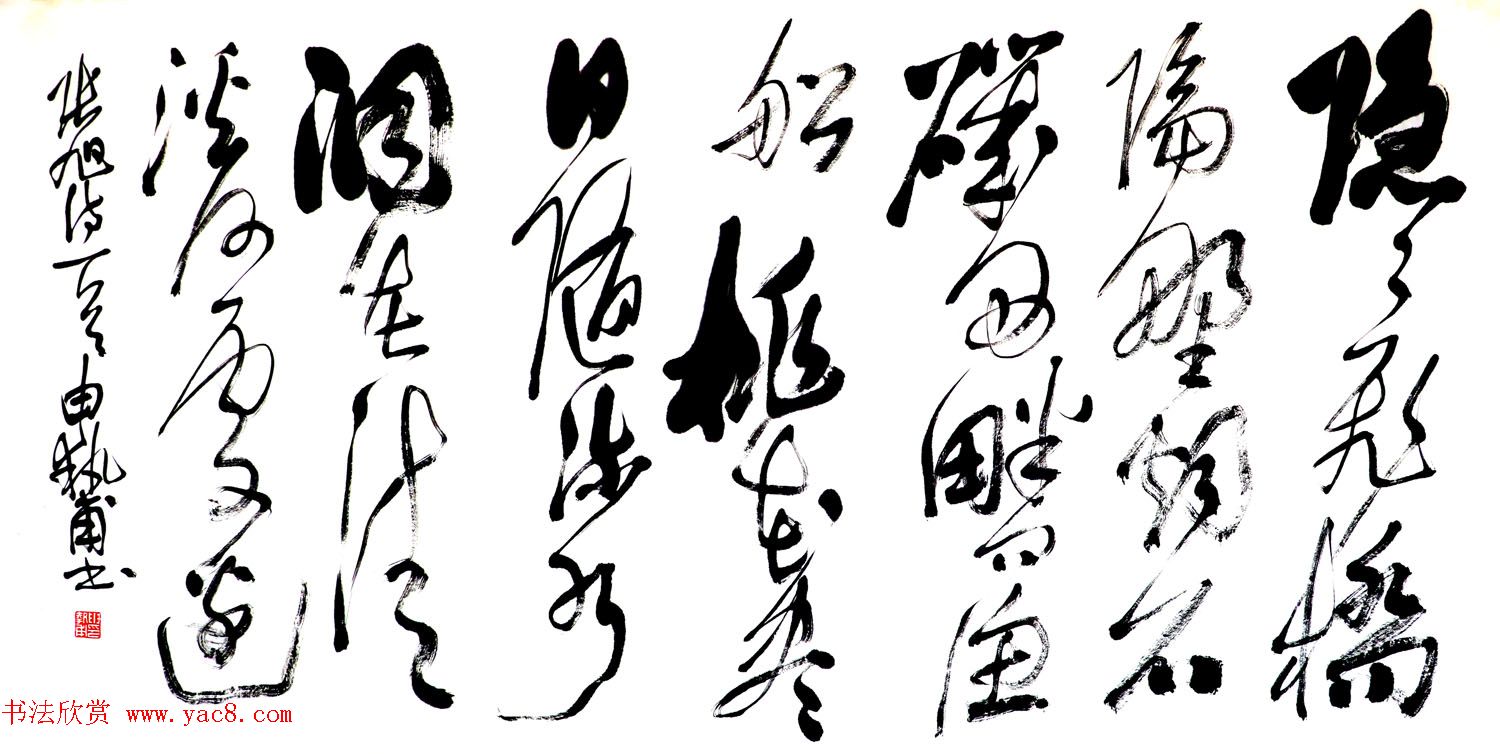 隐々飞橋
隔野烟石
磯西畔问渔
船桃花尽
日随流水
洞在清
溪何處边
张旭诗一首 由执甫书
书法欣赏 www.yac8.com